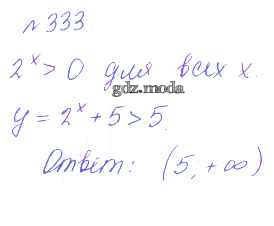 №333.
2^x > 0 для всех x.
gdz.moda
y = 2^x + 5 > 5.
Ответ: (5, +∞)